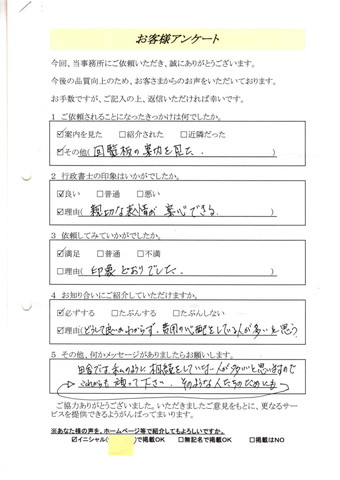 お客様アンケート
今回、当事務所にご依頼いただき、誠にありがとうございます。
今後の品質向上のため、お客さまからのお声をいただいております。
お手数ですが、ご記入の上、返信いただければ幸いです。
1 ご依頼されることになったきっかけは何でしたか。
☑案内を見た □紹介された □近隣だった
☑その他(回覧板の案内を見た.)
2 行政書士の印象はいかがでしたか。
☑良い □普通 □悪い
☑理由(親切な表情が安心できる.)
3 依頼してみていかがでしたか。
☑満足 □普通 □不満
□理由(印象どおりでした.)
4 お知り合いにご紹介していただけますか。
☑必ずする □たぶんする □たぶんしない
☑理由(どうして良いかわからず、費用の心配をしている人が多いと思う)
5 その他、何かメッセージがありましたらお願いします。
田舎では私のように相談をしていない人が多いと思いますので
これからも頑って下さい. そのような人たちのためにも
ご協力ありがとうございました。いただきましたご意見をもとに、更なるサー
ビスを提供できるようがんばってまいります。
※あなた様の声を、ホームページ等で紹介してもよろしいですか。
☑イニシャル( )で掲載OK □無記名で掲載OK □掲載はNO